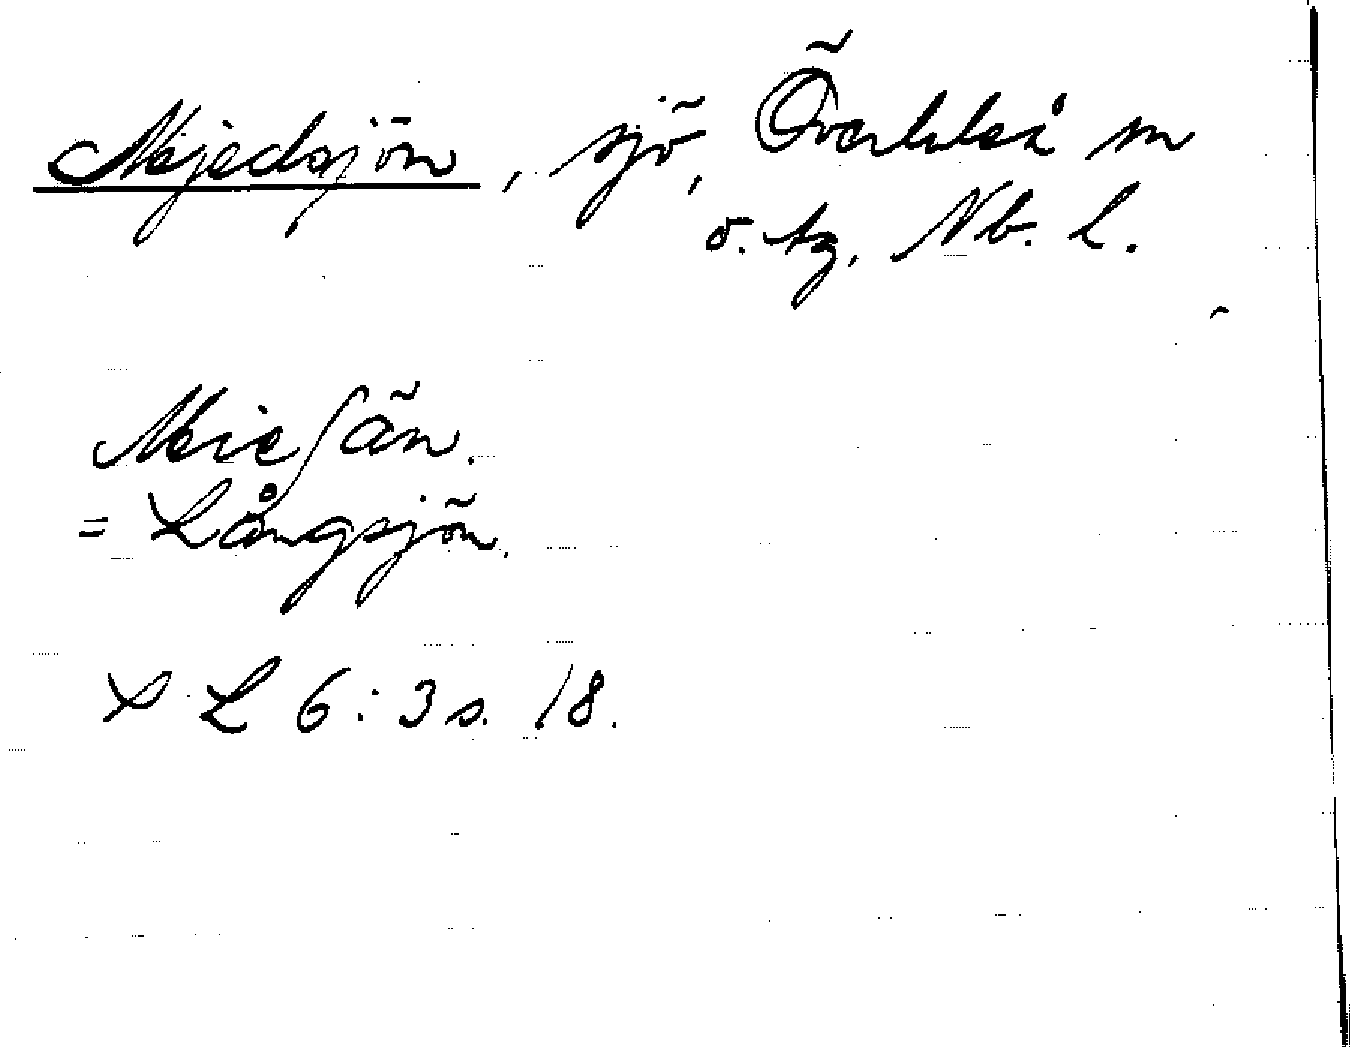 Mejedsjön, sjö, Överluleå sn
o. tg, Nb. l.
Meieʃån.
= Långsjön.
L 6:3 s. 18.